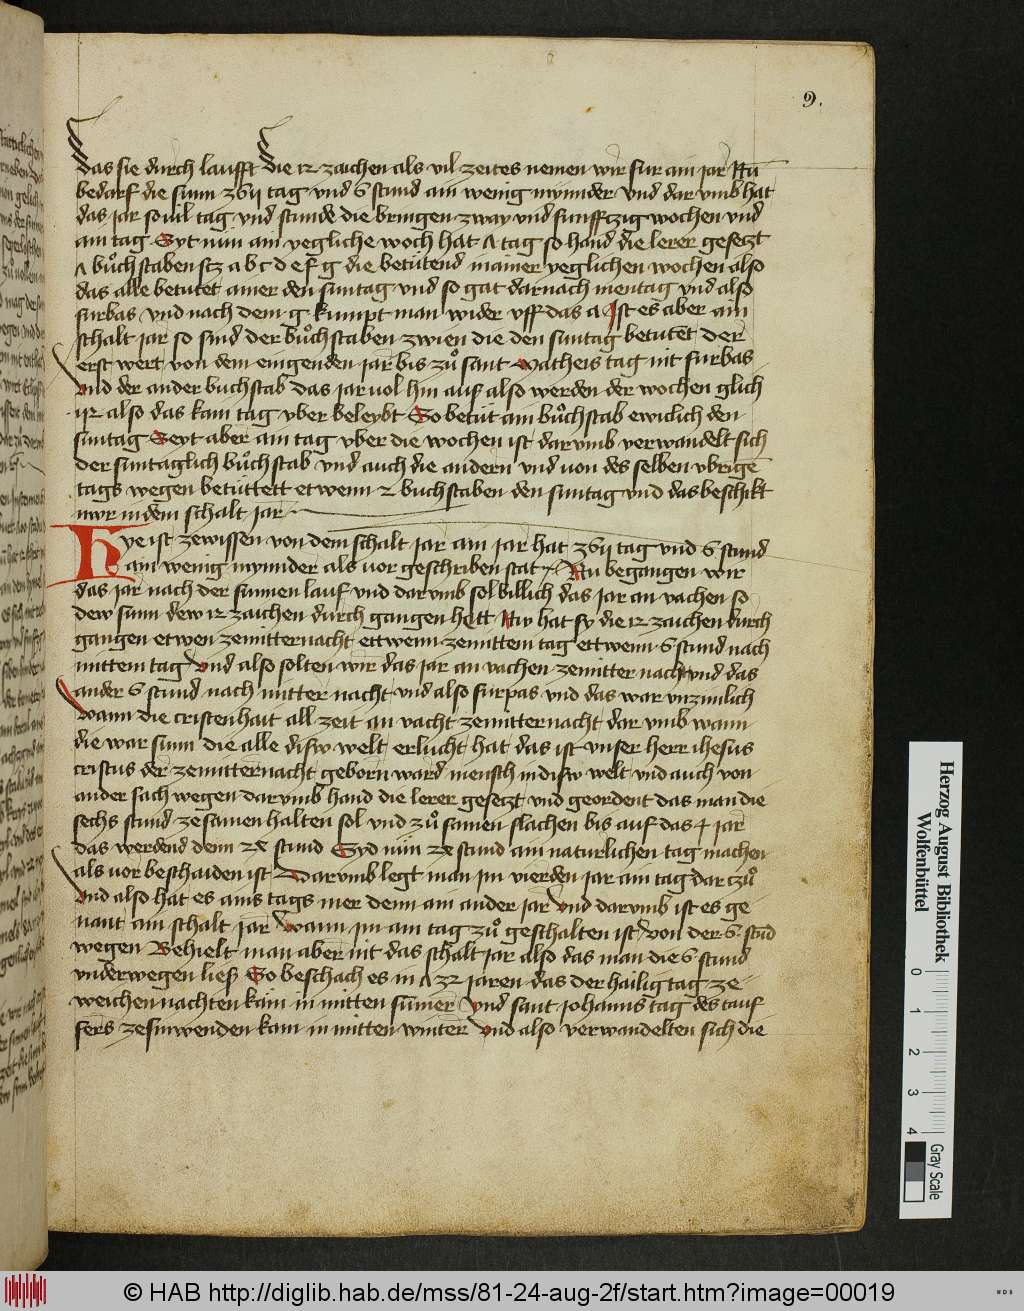 9.
das sie durch laufft die 12 zaichen als vil zeites nemen wir fur ain jar Nū
bedarf die sunn 365 tag vnd 6 stund ain wenig mynnder vnd dar vmb hat
das jar so uil tag vnd stunde die bringen zway vnd funffczig wochen vnd
ain tag Syt nun ain yegliche woch hat 7 tag so hand die lerer gesetzt
7 bůchstaben scz a b c d e f g die betütend in ainer yeglichen wochen also
das alle betutet ainer den suntag vnd so gat darnach mentag vnd also
furbas vnd nach dem g kumpt man wider vff das a Ist es aber ain
schalt jar so sind der bůchstaben zwien die den suntag betutet der
erst wert von dem eingenden jar bis zů sant Matheis tag nit furbas
vnd der ander buchstab das jar vol hin auß also werden der wochen glich
52 also das kain tag vber beleybt So betüt ain bůchstab ewiclich den
suntag Seyt aber ain tag vber die wochen ist dar vmb verwandelt sich
der suntaglich bůchstab vnd auch die andern vnd von des selben vbrigē
tags wegen betüttett etwenn 2 buchstaben den suntag vnd das beschiht
nwr in dem schalt jar
Hye ist ze wissen von dem schalt jar ain jar hat 365 tag vnd 6 stund
ain wenig mynnder als vor geschriben stat Nu begangen wir
das jar nach der sunnen lauf vnd darvmb sol billich das jar an vachen so
dew sunn dew 12 zaichen durch gangen hett Nw hat sy die 12 zaichen durch
gangen etwen ze mitternacht ettwenn ze mittem tag ettwenn 6 stund nach
mittem tag vnd also solten wir das jar an vachen ze mitter nacht vnd das
ander 6 stund nach mitter nacht vnd also furpas vnd das war vnzimlich
wann die cristenhait all zeit an vacht ze mitternacht dar vmb wann
die war sunn die alle disw welt erlucht hat das ist vnser herr ihesus
cristus der ze mitternacht geborn ward mensch in disw welt vnd auch von
ander sach wegen darvmb hand die lerer gesetzt vnd geordent das man die
sechs stund ze samen halten sol vnd zů samen slachen bis auf das 4 jar
das werdend denn 24 stund Syd nun 24 stund ain naturlichen tag machen
als vor beschaiden ist Darvmb legt man im vierden jar ain tag dar czů
vnd also hat es ains tags mer denn ain ander jar vnd darvmb ist es ge
nant ain schalt jar wann im ain tag zů geschalten ist von der 6 stūd
wegen Behielt man aber nit das schalt jar also das man die 6 stund
vnderwegen ließ So beschach es in 732 jaren das der hailig tag ze
weichen nachten kām in mitten sumer vnd sant johanns tag des tauf
fers ze sunwenden kam in mitten winter vnd also verwandelten sich die
Herzog August Bibliothek
Wolfenbüttel
0 1 2 3 4
Gray Scale
© HAB http://diglib.hab.de/mss/81-24-aug-2f/start.htm?image=00019